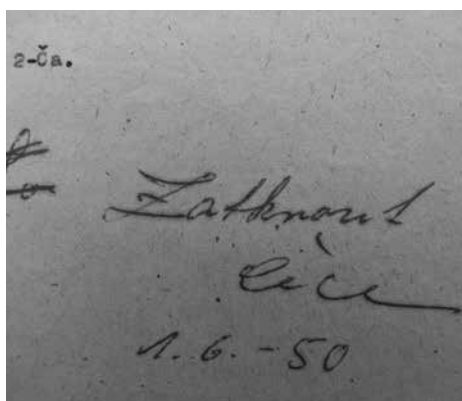 2-Ča.
Zatknout
1.6.-50